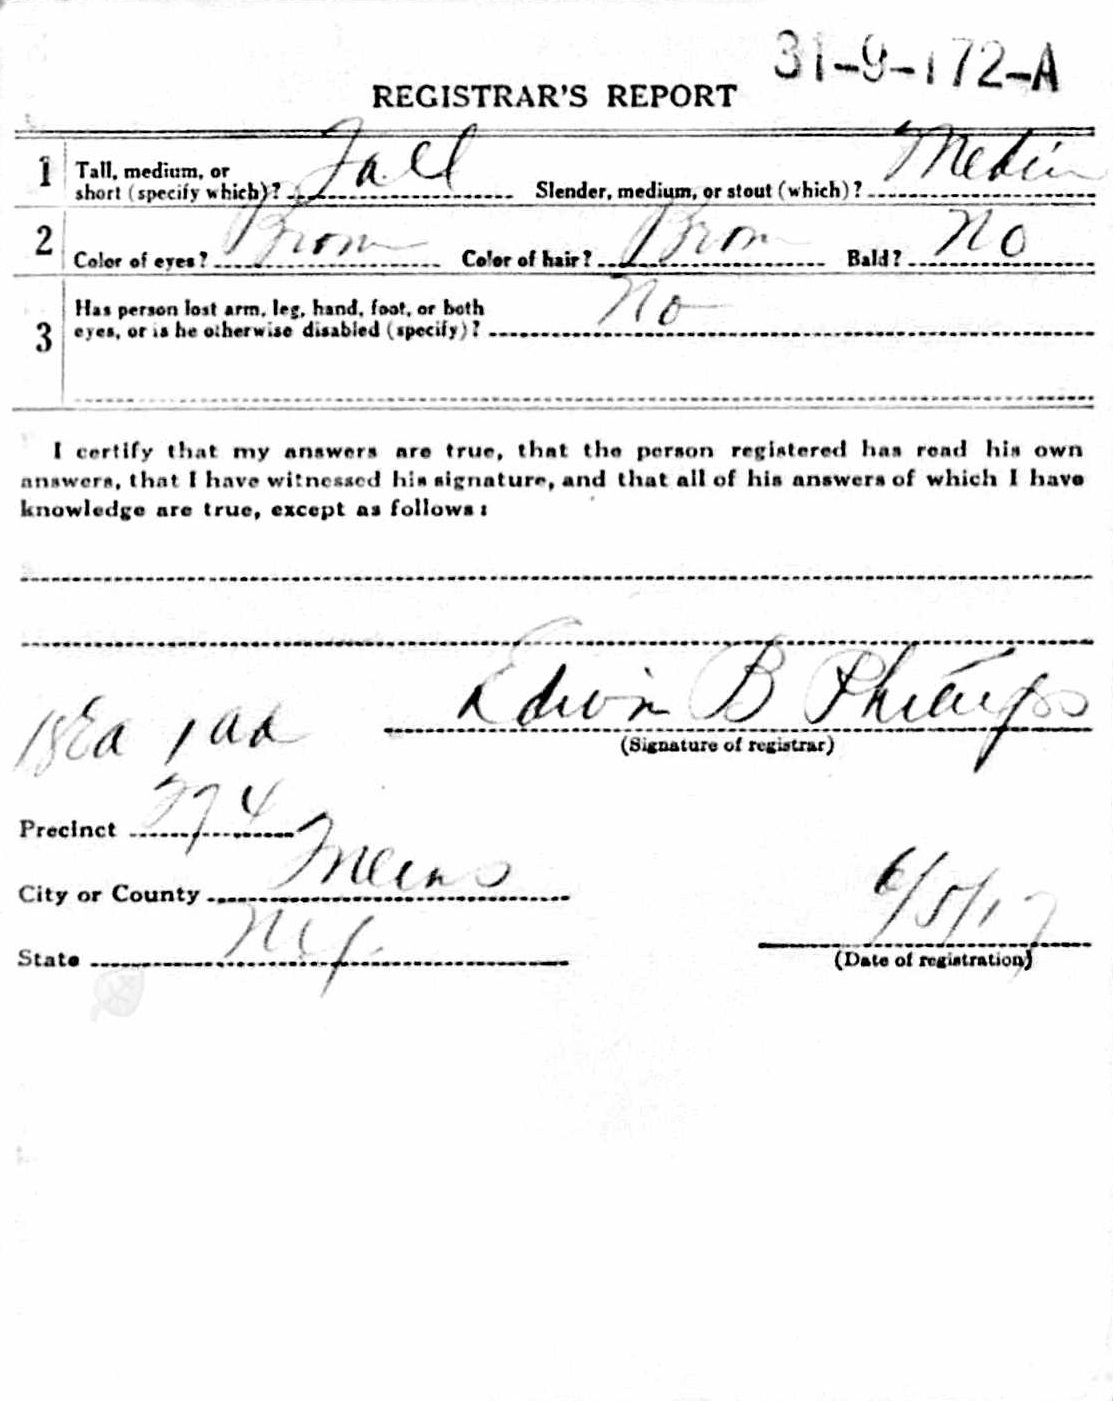 31-9-172-A
REGISTRAR'S REPORT
1 Tall, medium, or short (specify which)? Tall Slender, medium, or stout (which)? Medium
2 Color of eyes? Brown Color of hair? Brown Bald? No
3 Has person lost arm, leg, hand, foot, or both
eyes, or is he otherwise disabled (specify)? No
I certify that my answers are true, that the person registered has read his own
answers, that I have witnessed his signature, and that all of his answers of which I have
knowledge are true, except as follows:
Edwin B Phillips
(Signature of registrar)
Precinct
City or County
State N.Y.
6/5/17
(Date of registration)